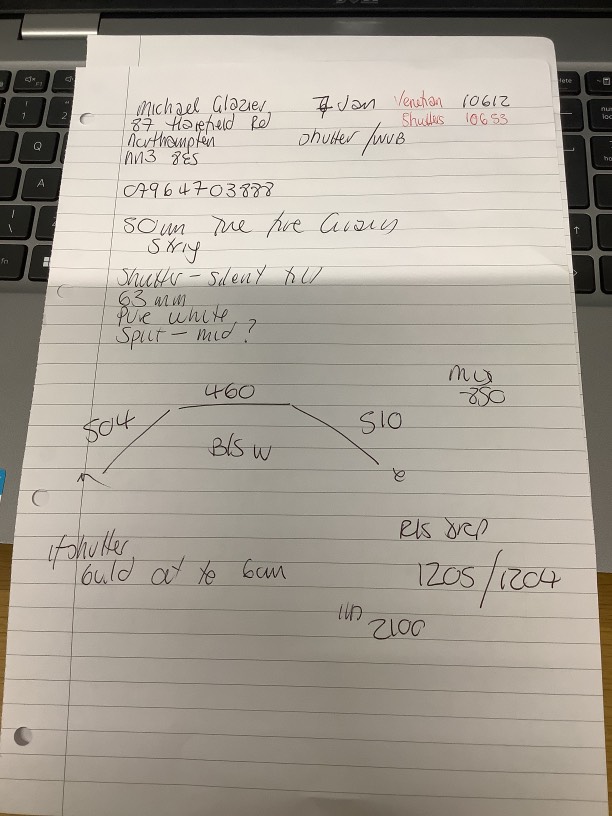 Michael Glazier 7 Jan Venetian 10612
87 Harefield Rd Shutters 10653
Northampton Shutter / WVB
NN3 8ES
07964703888
50mm Fine
String
Shutter - silent
63 mm
Pure white
Split - mid ?
460
504
510
850
BIS W
RIS DRP
If shutter
build out to 6cm
1205/1204
2100